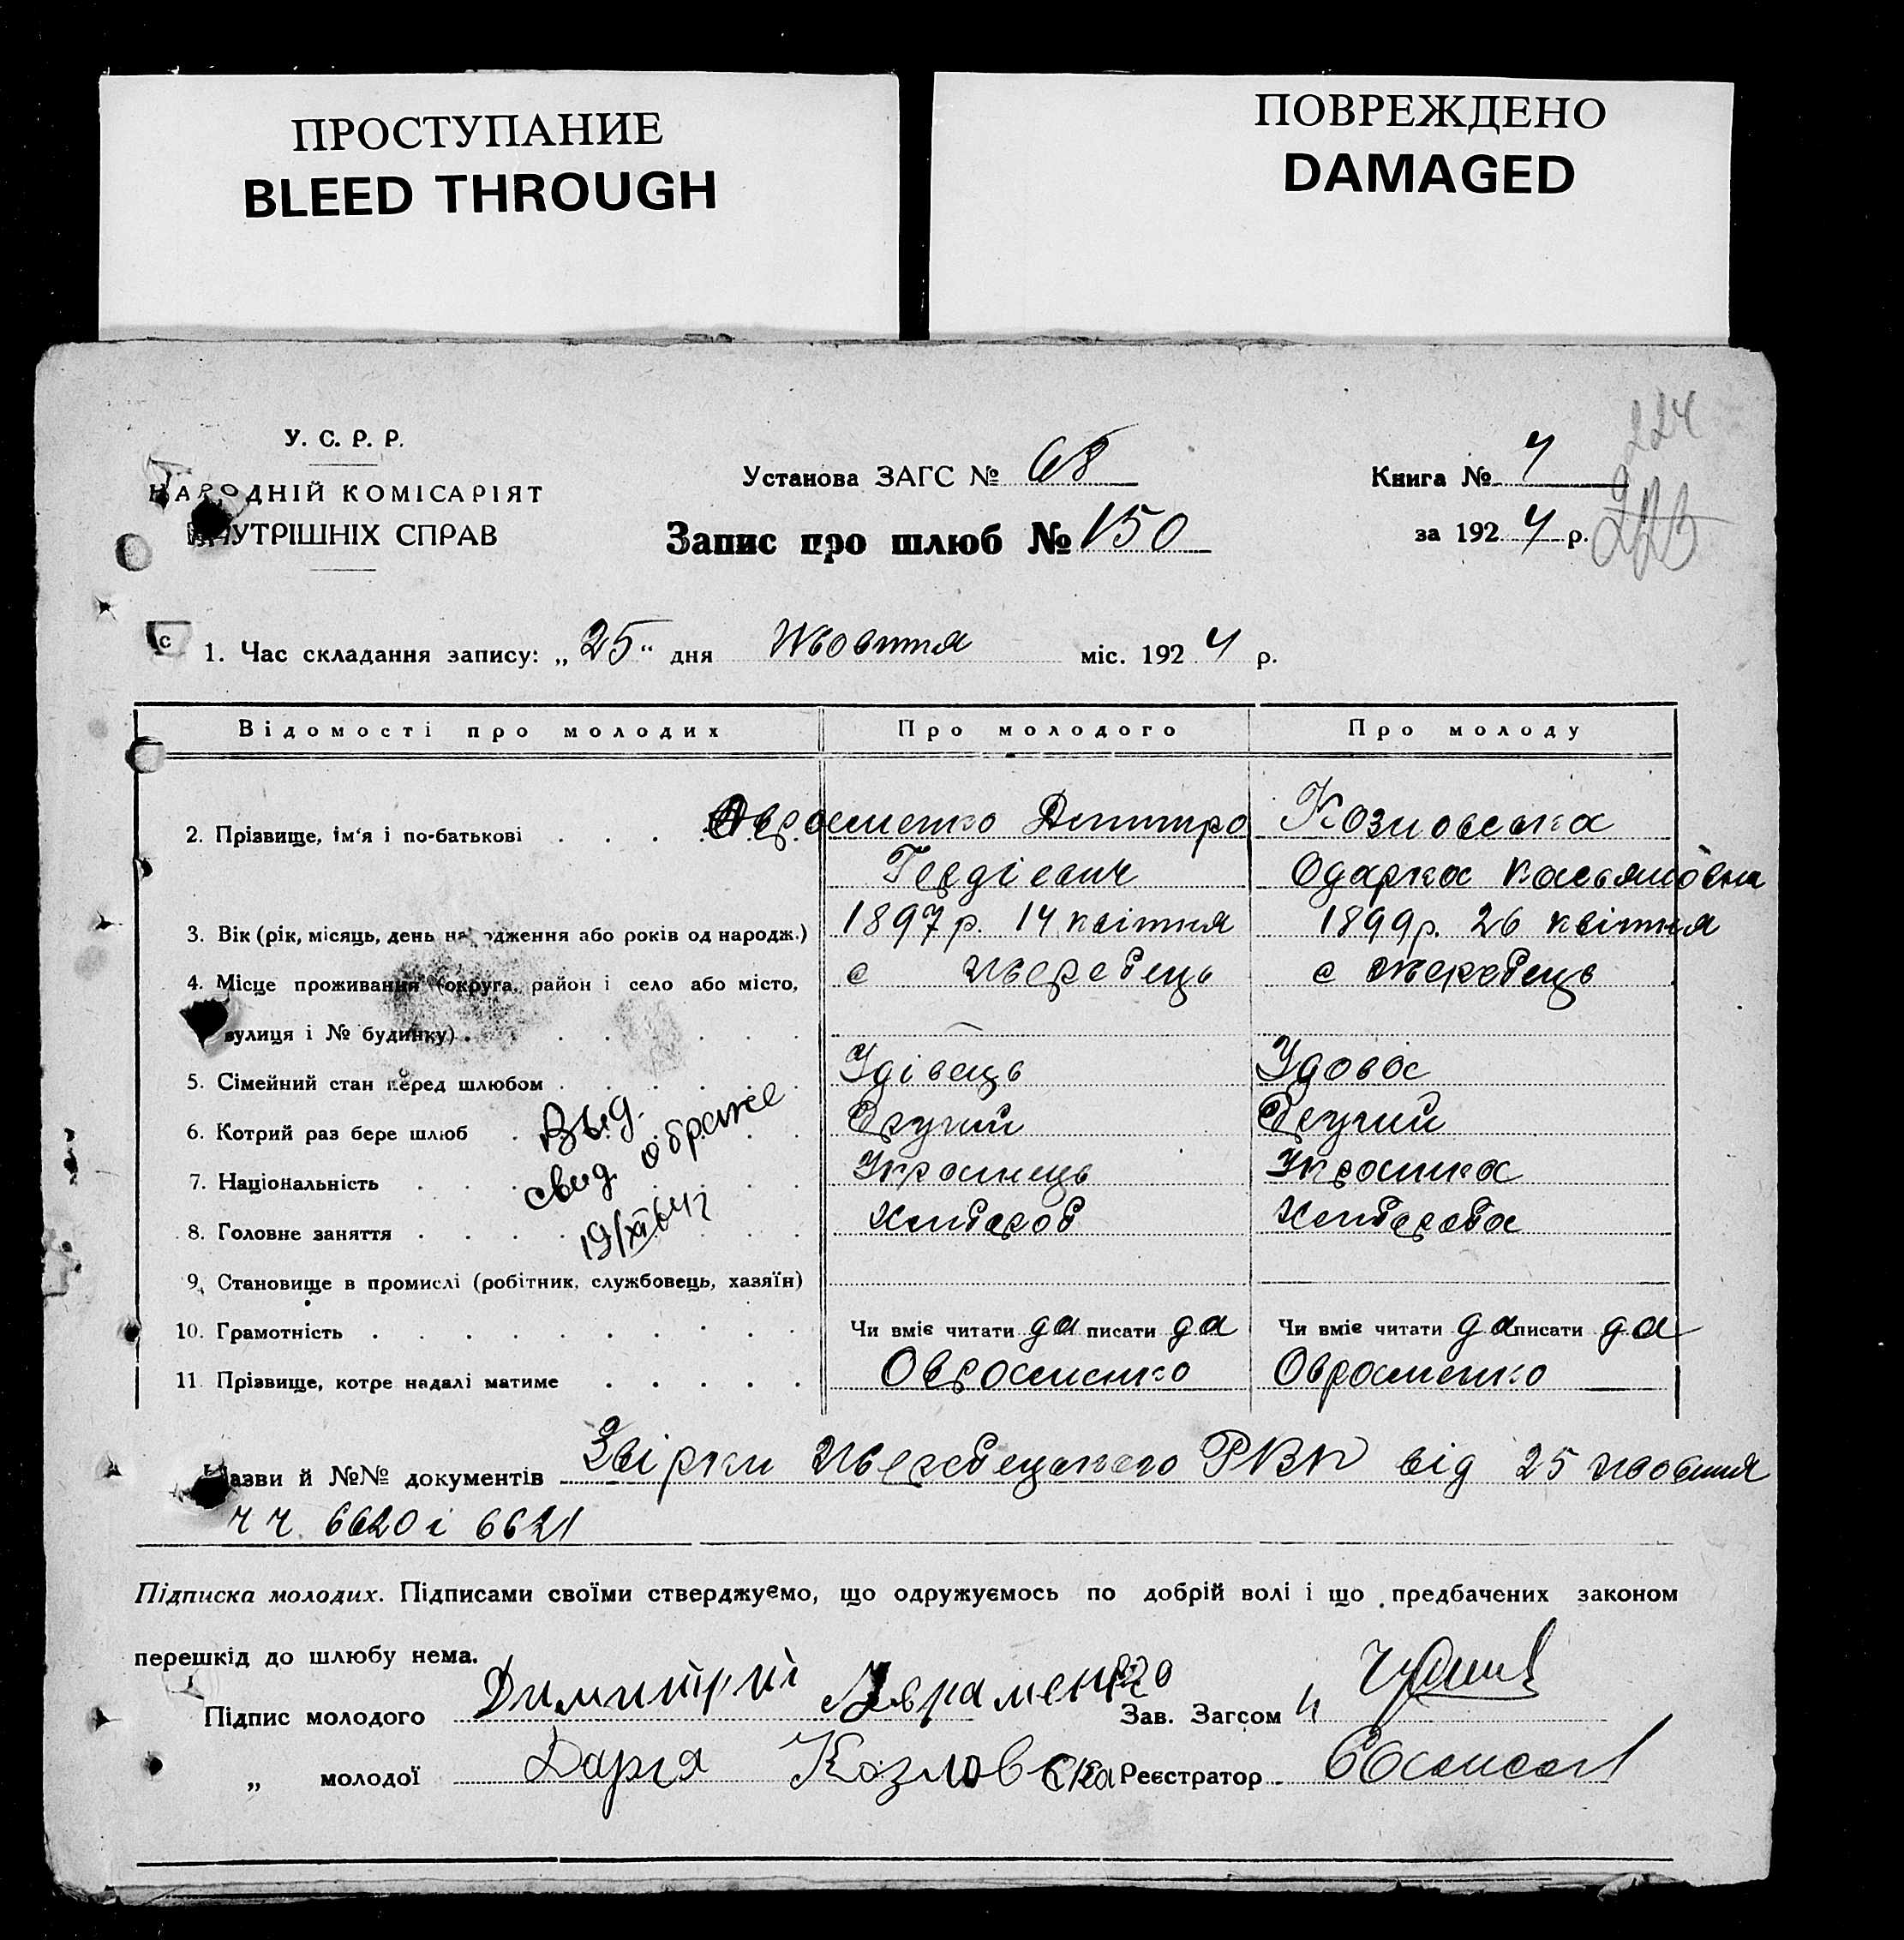 ПРОСТУПАНИЕ
BLEED THROUGH
ПОВРЕЖДЕНО
DAMAGED
224
У. С. Р. Р.
НАРОДНІЙ КОМІСАРІЯТ
ВНУТРІШНІХ СПРАВ
Установа ЗАГС № 68
Запис про шлюб № 150
Книга № 4
за 1924 р.
1. Час складання запису: „25“ дня Жовтня міс. 1924 р.
Відомості про молодих Про молодого Про молоду
2. Прізвище, ім'я і по-батькові Овраменко Дмитро Козловська
Гердієвич Одарка Касьяновна
3. Вік (рік, місяць, день народження або років од народж.) 1897 р. 14 квітня 1899 р. 26 квітня
4. Місце проживання (округа, район і село або місто, с Жеребець с Жеребець
вулиця і № будинку)
5. Сімейний стан перед шлюбом Удівець Удова
6. Котрий раз бере шлюб Другий Другий
7. Національність Украинець Украинка
8. Головне заняття Хлібороб Хлібороба
Выд.
свид. о браке
19/XI 64 г
9. Становище в промислі (робітник, службовець, хазяїн)
10. Грамотність Чи вміє читати да писати да Чи вміє читати да писати да
11. Прізвище, котре надалі матиме Овраменко Овраменко
Назви й №№ документів Звірки Жеребецького РВК від 25 жовтня
чч. 6620 і 6621
Підписка молодих. Підписами своїми стверджуємо, що одружуємось по добрій волі і що предбачених законом
перешкід до шлюбу нема.
Підпис молодого Димитрий Авраменко Зав. Загсом
„ молодої Дарія Козловска Реєстратор